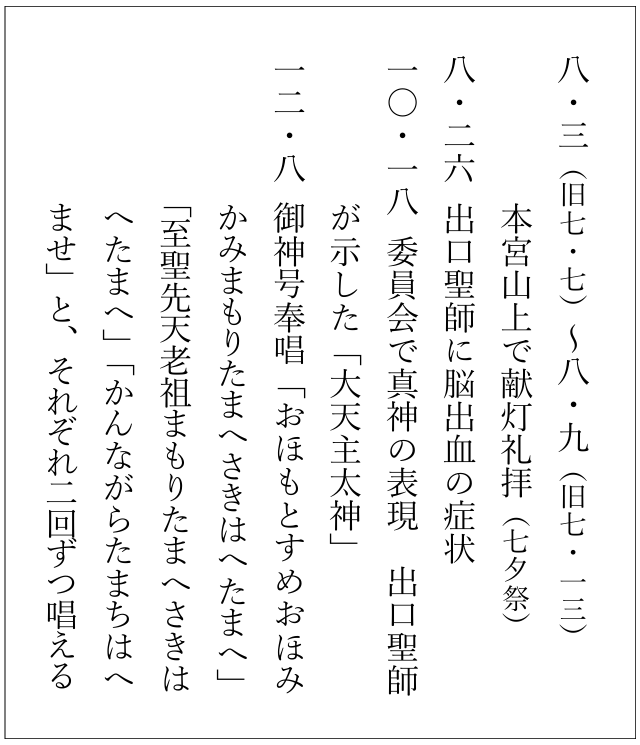 八・三（旧七・七）～八・九（旧七・一三）
本宮山上で献灯礼拝（七夕祭）
八・二六　出口聖師に脳出血の症状
一〇・一八　委員会で真神の表現　出口聖師
が示した「大天主太神」
一二・八　御神号奉唱「おほもとすめおほみ
かみまもりたまへさきはへたまへ」
「至聖先天老祖まもりたまへさきは
へたまへ」「かんながらたまちはへ
ませ」と、それぞれ二回ずつ唱える